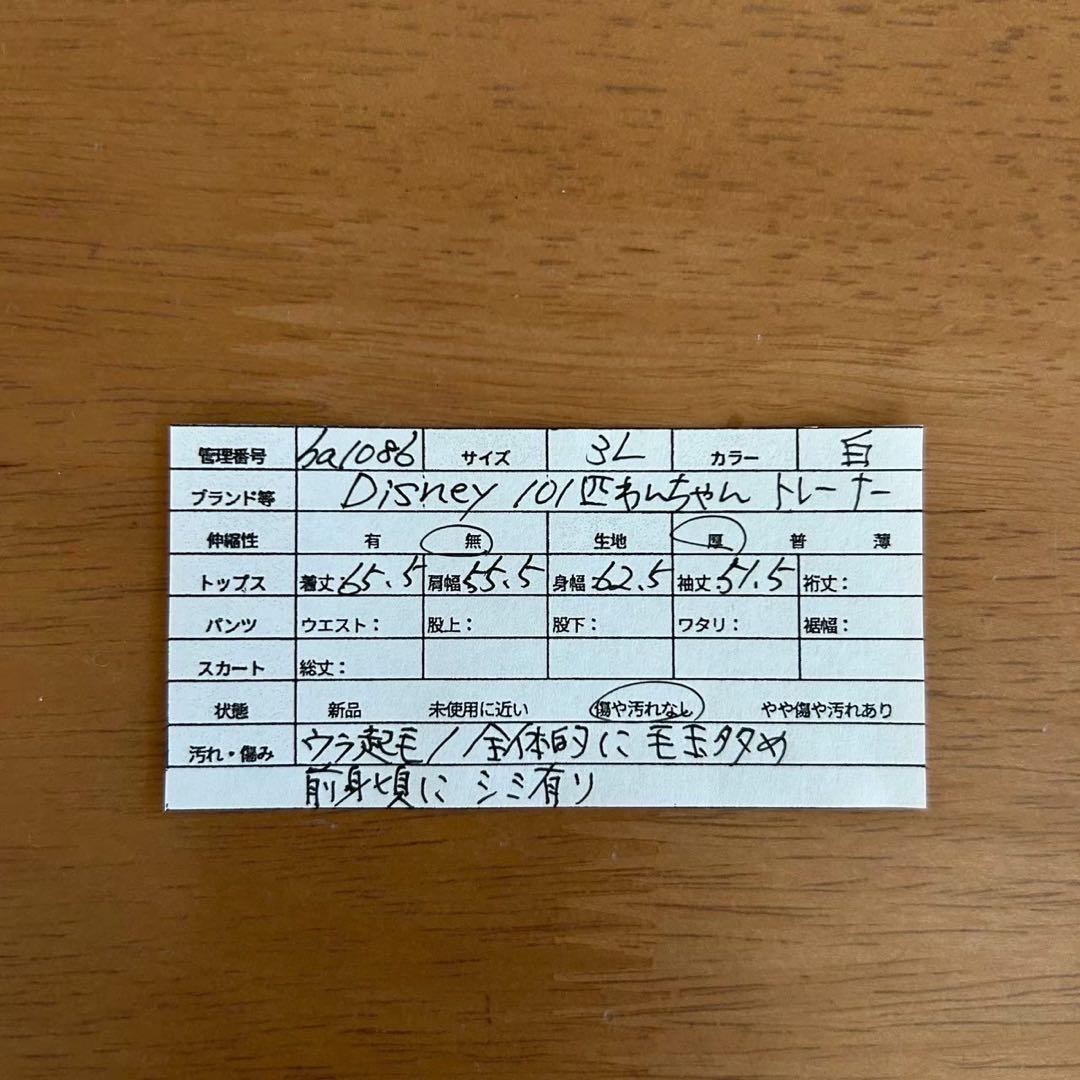 管理番号 ba1086 サイズ 3L カラー 白
ブランド等 Disney 101匹わんちゃん トレーナー
伸縮性 有 無 生地 厚 普 薄
トップス 着丈:65.5 肩幅:55.5 身幅:62.5 袖丈:51.5 裄丈:
パンツ ウエスト: 股上: 股下: ワタリ: 裾幅:
スカート 総丈:
状態 新品 未使用に近い 傷や汚れなし やや傷や汚れあり
汚れ・傷み ウラ起毛/全体的に毛玉多め
前身頃に シミ有り